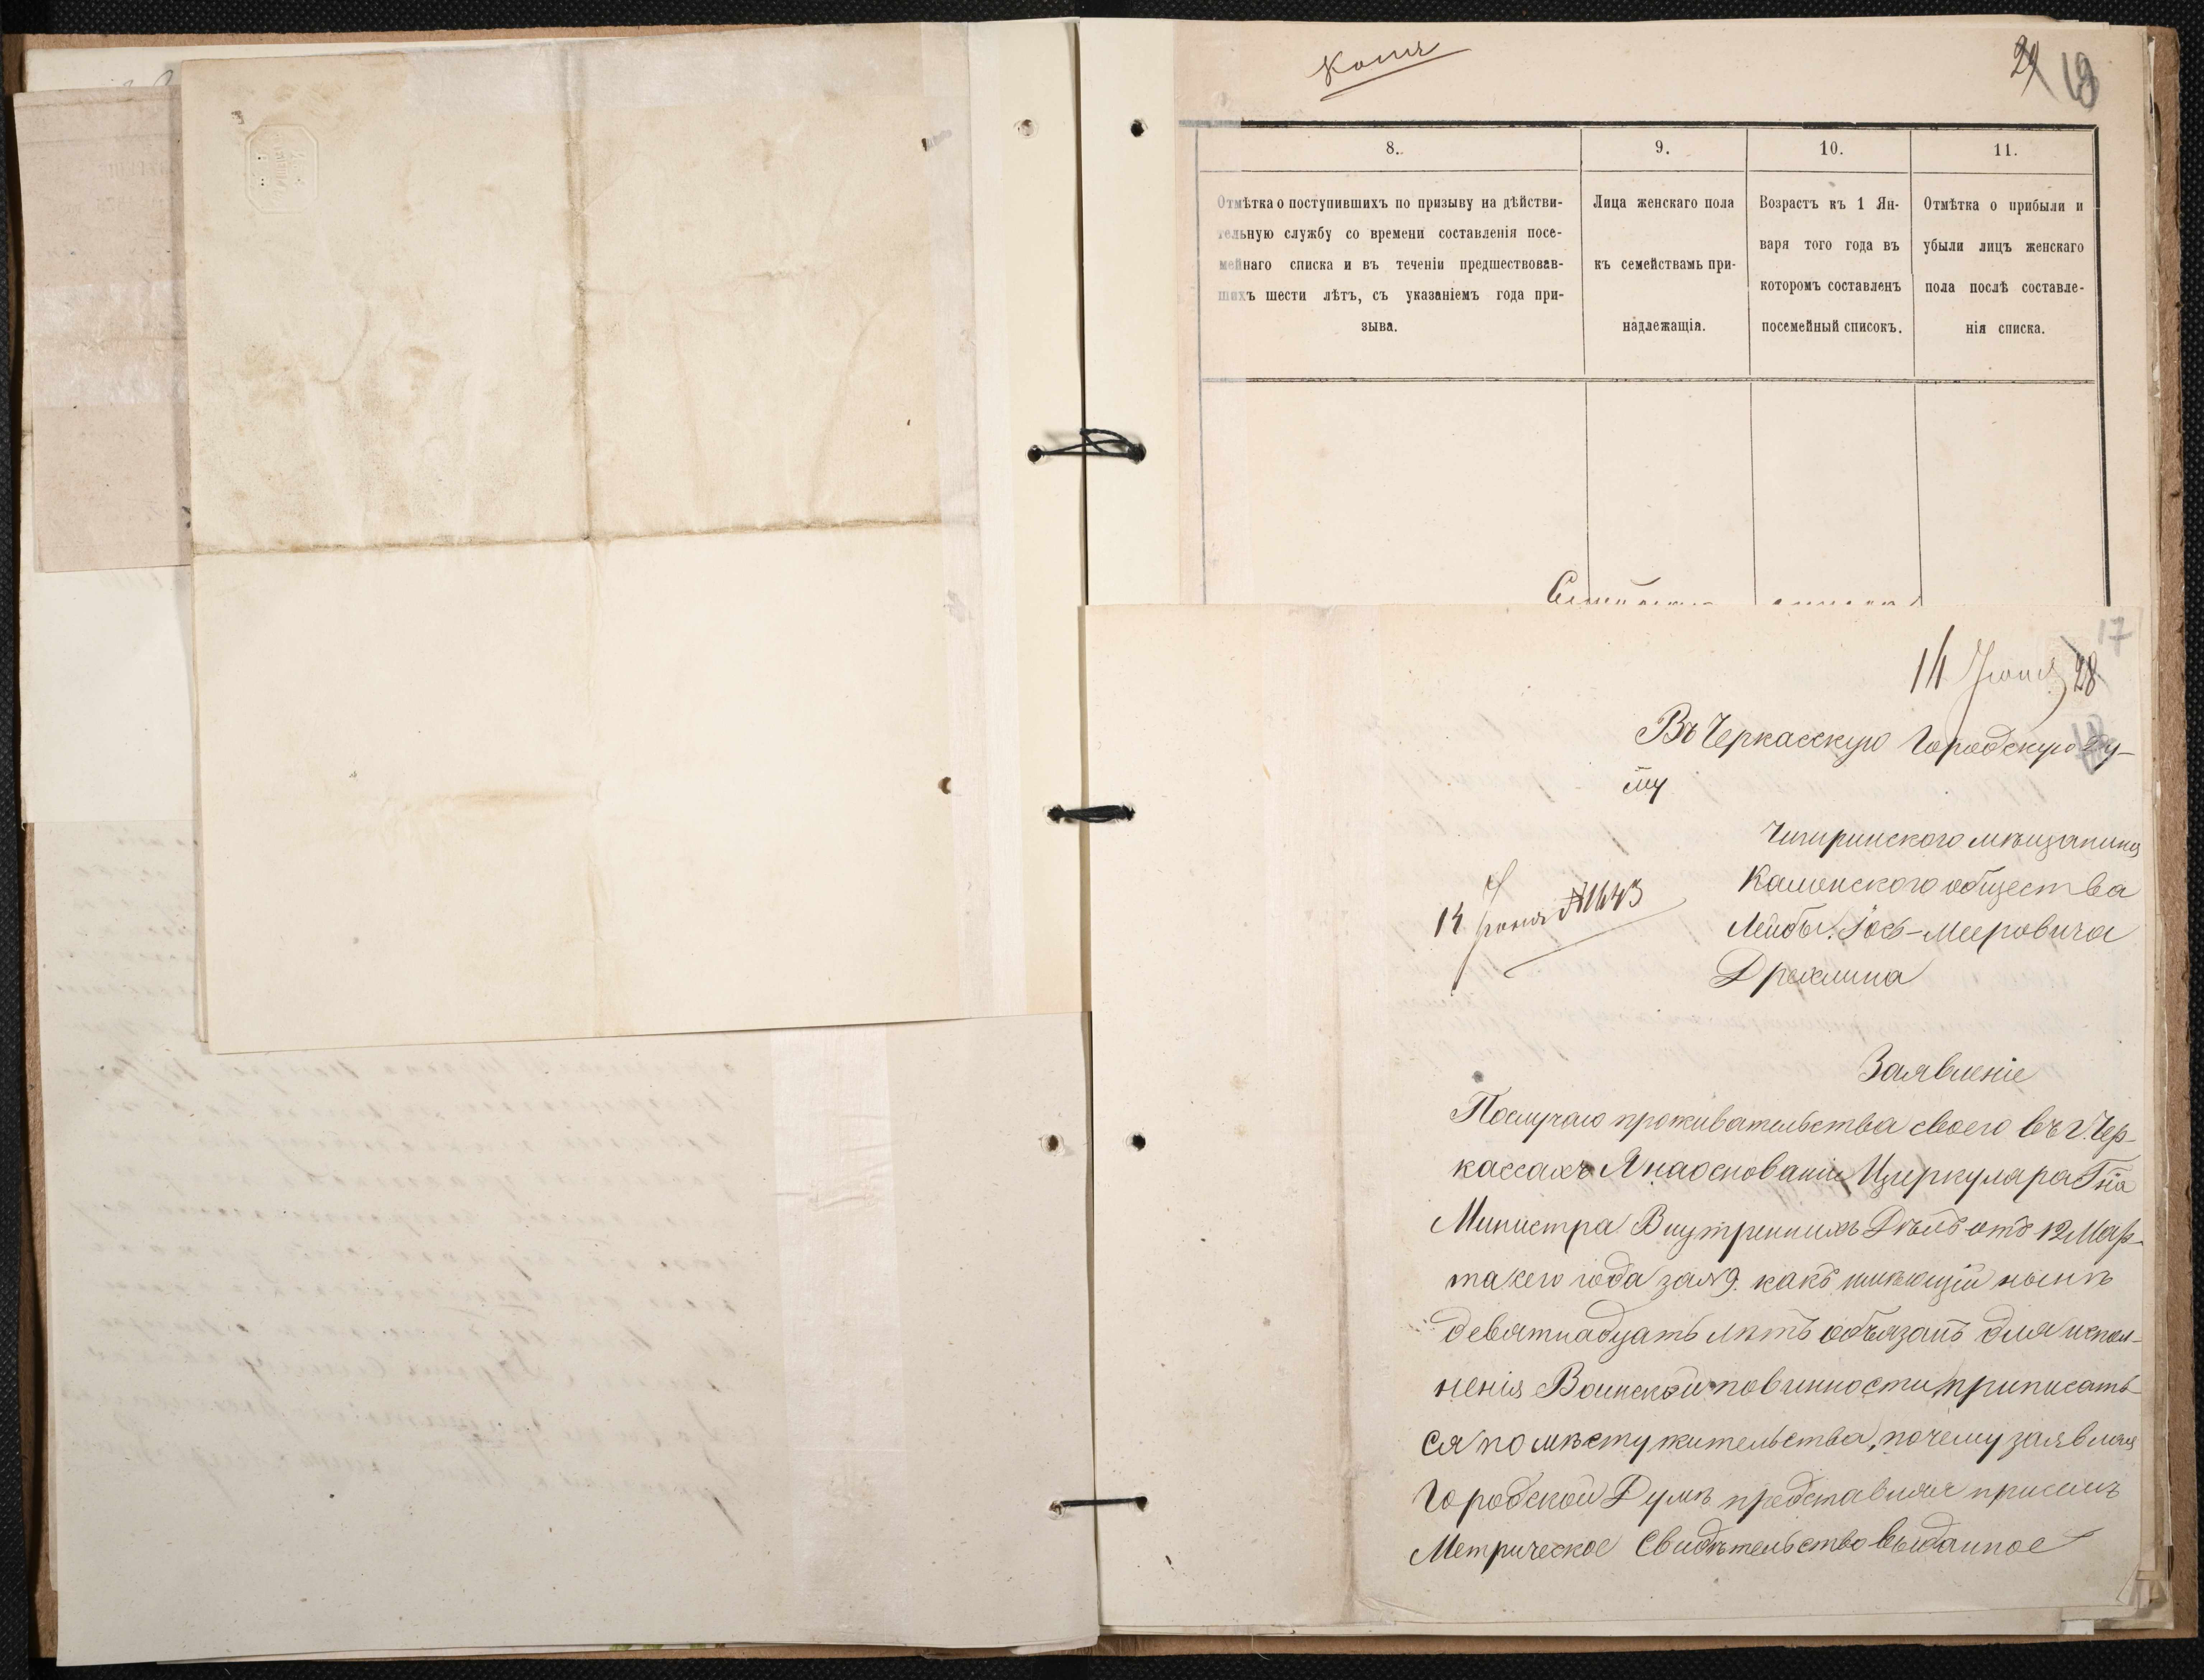 Копія
29 19
8.
Отмѣтка о поступившихъ по призыву на дѣйстви-
тельную службу со времени составленія посе-
мейнаго списка и въ теченіи предшествовав-
шихъ шести лѣтъ, съ указаніемъ года при-
зыва.
9.
Лица женскаго пола
къ семействамъ при-
надлежащія.
10.
Возрастъ къ 1 Ян-
варя того года въ
которомъ составленъ
посемейный списокъ.
11.
Отмѣтка о прибыли и
убыли лицъ женскаго
пола послѣ составле-
нія списка.
17
14 Іюня 28
Въ Черкасскую Городскую Ду-
му
Чигиринского мѣщанина
Каменского общества
Лейбы Іось-Мееровича
Драхлина
14 Іюня №1643
Заявленіе
Послучаю проживательства своего въ г. Чер-
кассахъ Я наоснованіи Циркуляра Гна
Министра Внутреннихъ Дѣлъ отъ 12 Мар-
та сего года за №9. какъ имѣющій нынѣ
девятнадцать лѣтъ обѣязанъ для испол-
ненія Воинской повинности приписать
ся по мѣсту жительства, почему заявляя
Городской Думѣ представляя присемъ
Метрическое Свидѣтельство выданное